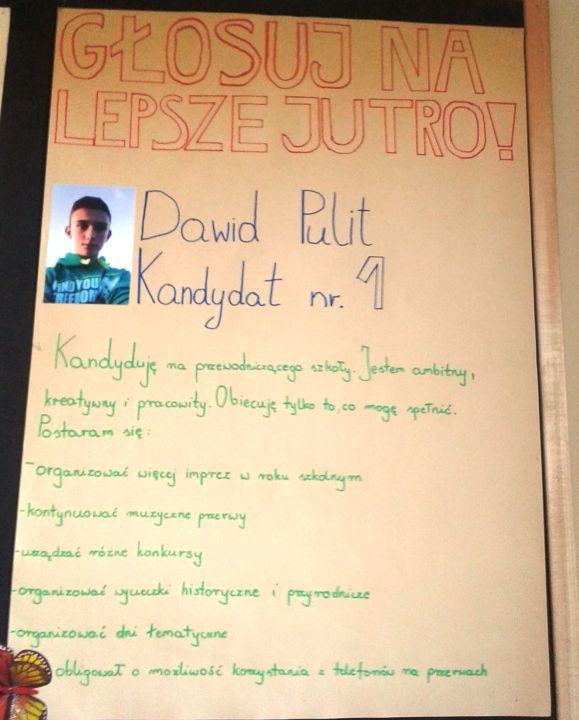 GŁOSUJ NA
LEPSZE JUTRO!
Dawid Pulit
Kandydat nr. 1
FIND YOU
FREEDOM
Kandyduję na przewodniczącego szkoły. Jestem ambitny,
kreatywny i pracowity. Obiecuję tylko to, co mogę spełnić.
Postaram się:
-organizować więcej imprez w roku szkolnym
-kontynuować muzyczne przerwy
-urządzać różne konkursy
-organizować wycieczki historyczne i przyrodnicze
-organizować dni tematyczne
obligował o możliwość korzystania z telefonów na przerwach